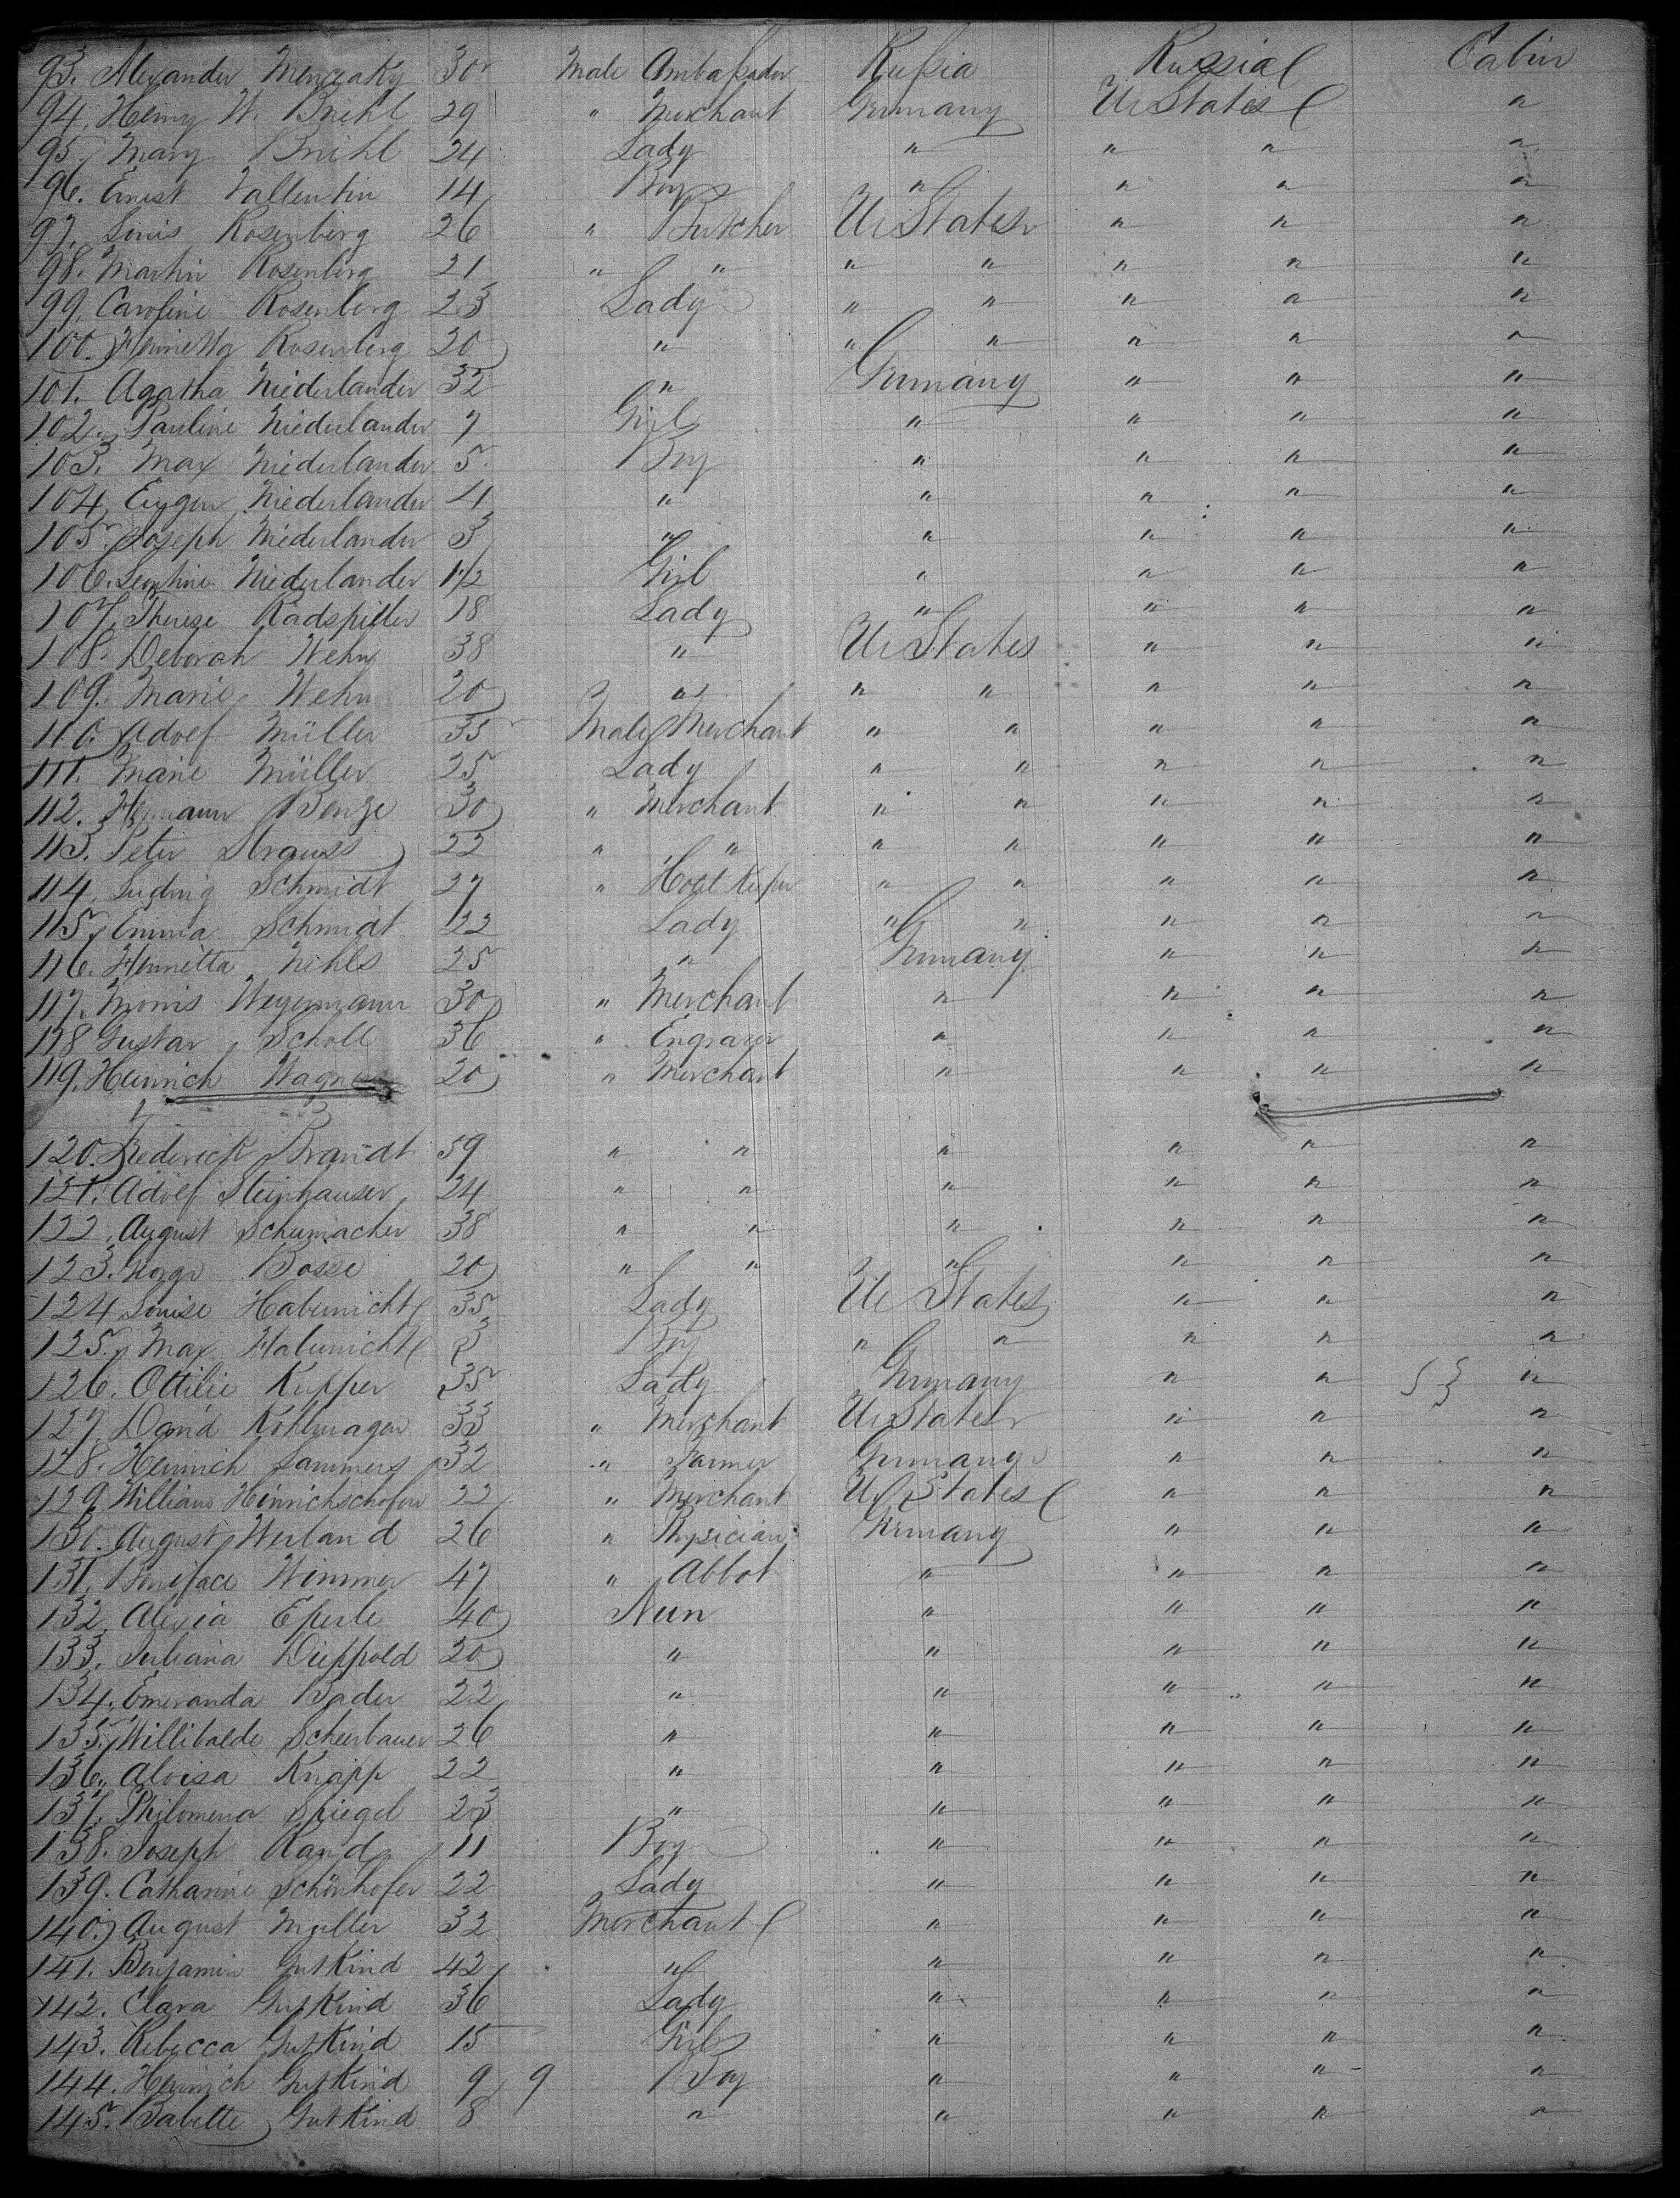 93. Alexander Menczaky 30 Male Ambassader Russia Russia Cabin
94. Henry W. Briehl 29 " Merchant Germany U. States "
95. Mary Briehl 24 Lady " " " "
96. Ernest Vallentin 14 Boy " " " "
97. Louis Rosenberg 26 " Butcher U. States " " "
98. Martin Rosenberg 21 " " " " " " "
99. Caroline Rosenberg 23 Lady " " " " "
100. Henrietta Rosenberg 20 " " " " " "
101. Agatha Niederlander 32 " Germany " " "
102. Pauline Niederlander 7 Girl " " " "
103. Max Niederlander 5 Boy " " " "
104. Eugen Niederlander 4 " " " " "
105. Joseph Niederlander 3 " " " " "
106. Niederlander 1 1/2 Girl " " " "
107. Therese Radspieller 18 Lady " " " "
108. Deborah Wehn 38 " U. States " " "
109. Marie Wehn 20 " " " " " "
110. Adolf Müller 35 Male Merchant " " " " "
111. Marie Müller 25 Lady " " " " "
112. Hermann Benze 30 " Merchant " " " " "
113. Peter Strauss 22 " " " " " " "
114. Ludwig Schmidt 27 " Hotel Keeper " " " " "
115. Emma Schmidt 22 Lady " " " " "
116. Henrietta Nihls 25 " Germany " " "
117. Morris Weyermann 30 " Merchant " " " "
118 Gustav Scholl 36 " Engraver " " " "
119. Heinrich Wagner 20 " Merchant " " " "
120. Frederick Brandt 59 " " " " " "
121. Adolf Steinhauser 24 " " " " " "
122. August Schumacher 38 " " " " " "
123. Hugo Bosse 20 " " " " " "
124 Louise Habernicht 35 Lady U. States " " "
125. Max Habernicht 3 Boy " " " " "
126. Ottilie Kupfer 35 Lady Germany " " "
127. David Kohlwagen 33 " Merchant U. States " " "
128. Heinrich Lammers 32 " Farmer Germany " " "
129. William Heinrichschofen 22 " Merchant U. States " " "
130. August Werland 26 " Physician Germany " " "
131. Boniface Wimmer 47 " Abbot " " " "
132. Alexia Eperle 40 Nun " " " "
133. Juliana Dieppold 20 " " " " "
134. Emeranda Bader 22 " " " " "
135. Willibalde Scheerbauer 26 " " " " "
136. Aloisa Knapp 22 " " " " "
137. Philomena Spiegel 23 " " " " "
138. Joseph Rand 11 Boy " " " "
139. Catharine Schönhofer 22 Lady " " " "
140. August Muller 32 Merchant " " " "
141. Benjamin Gutkind 42 " " " " "
142. Clara Gutkind 36 Lady " " " "
143. Rebecca Gutkind 15 Girl " " " "
144. Heinrich Gutkind 9 9 Boy " " " "
145. Babette Gutkind 8 " " " " "